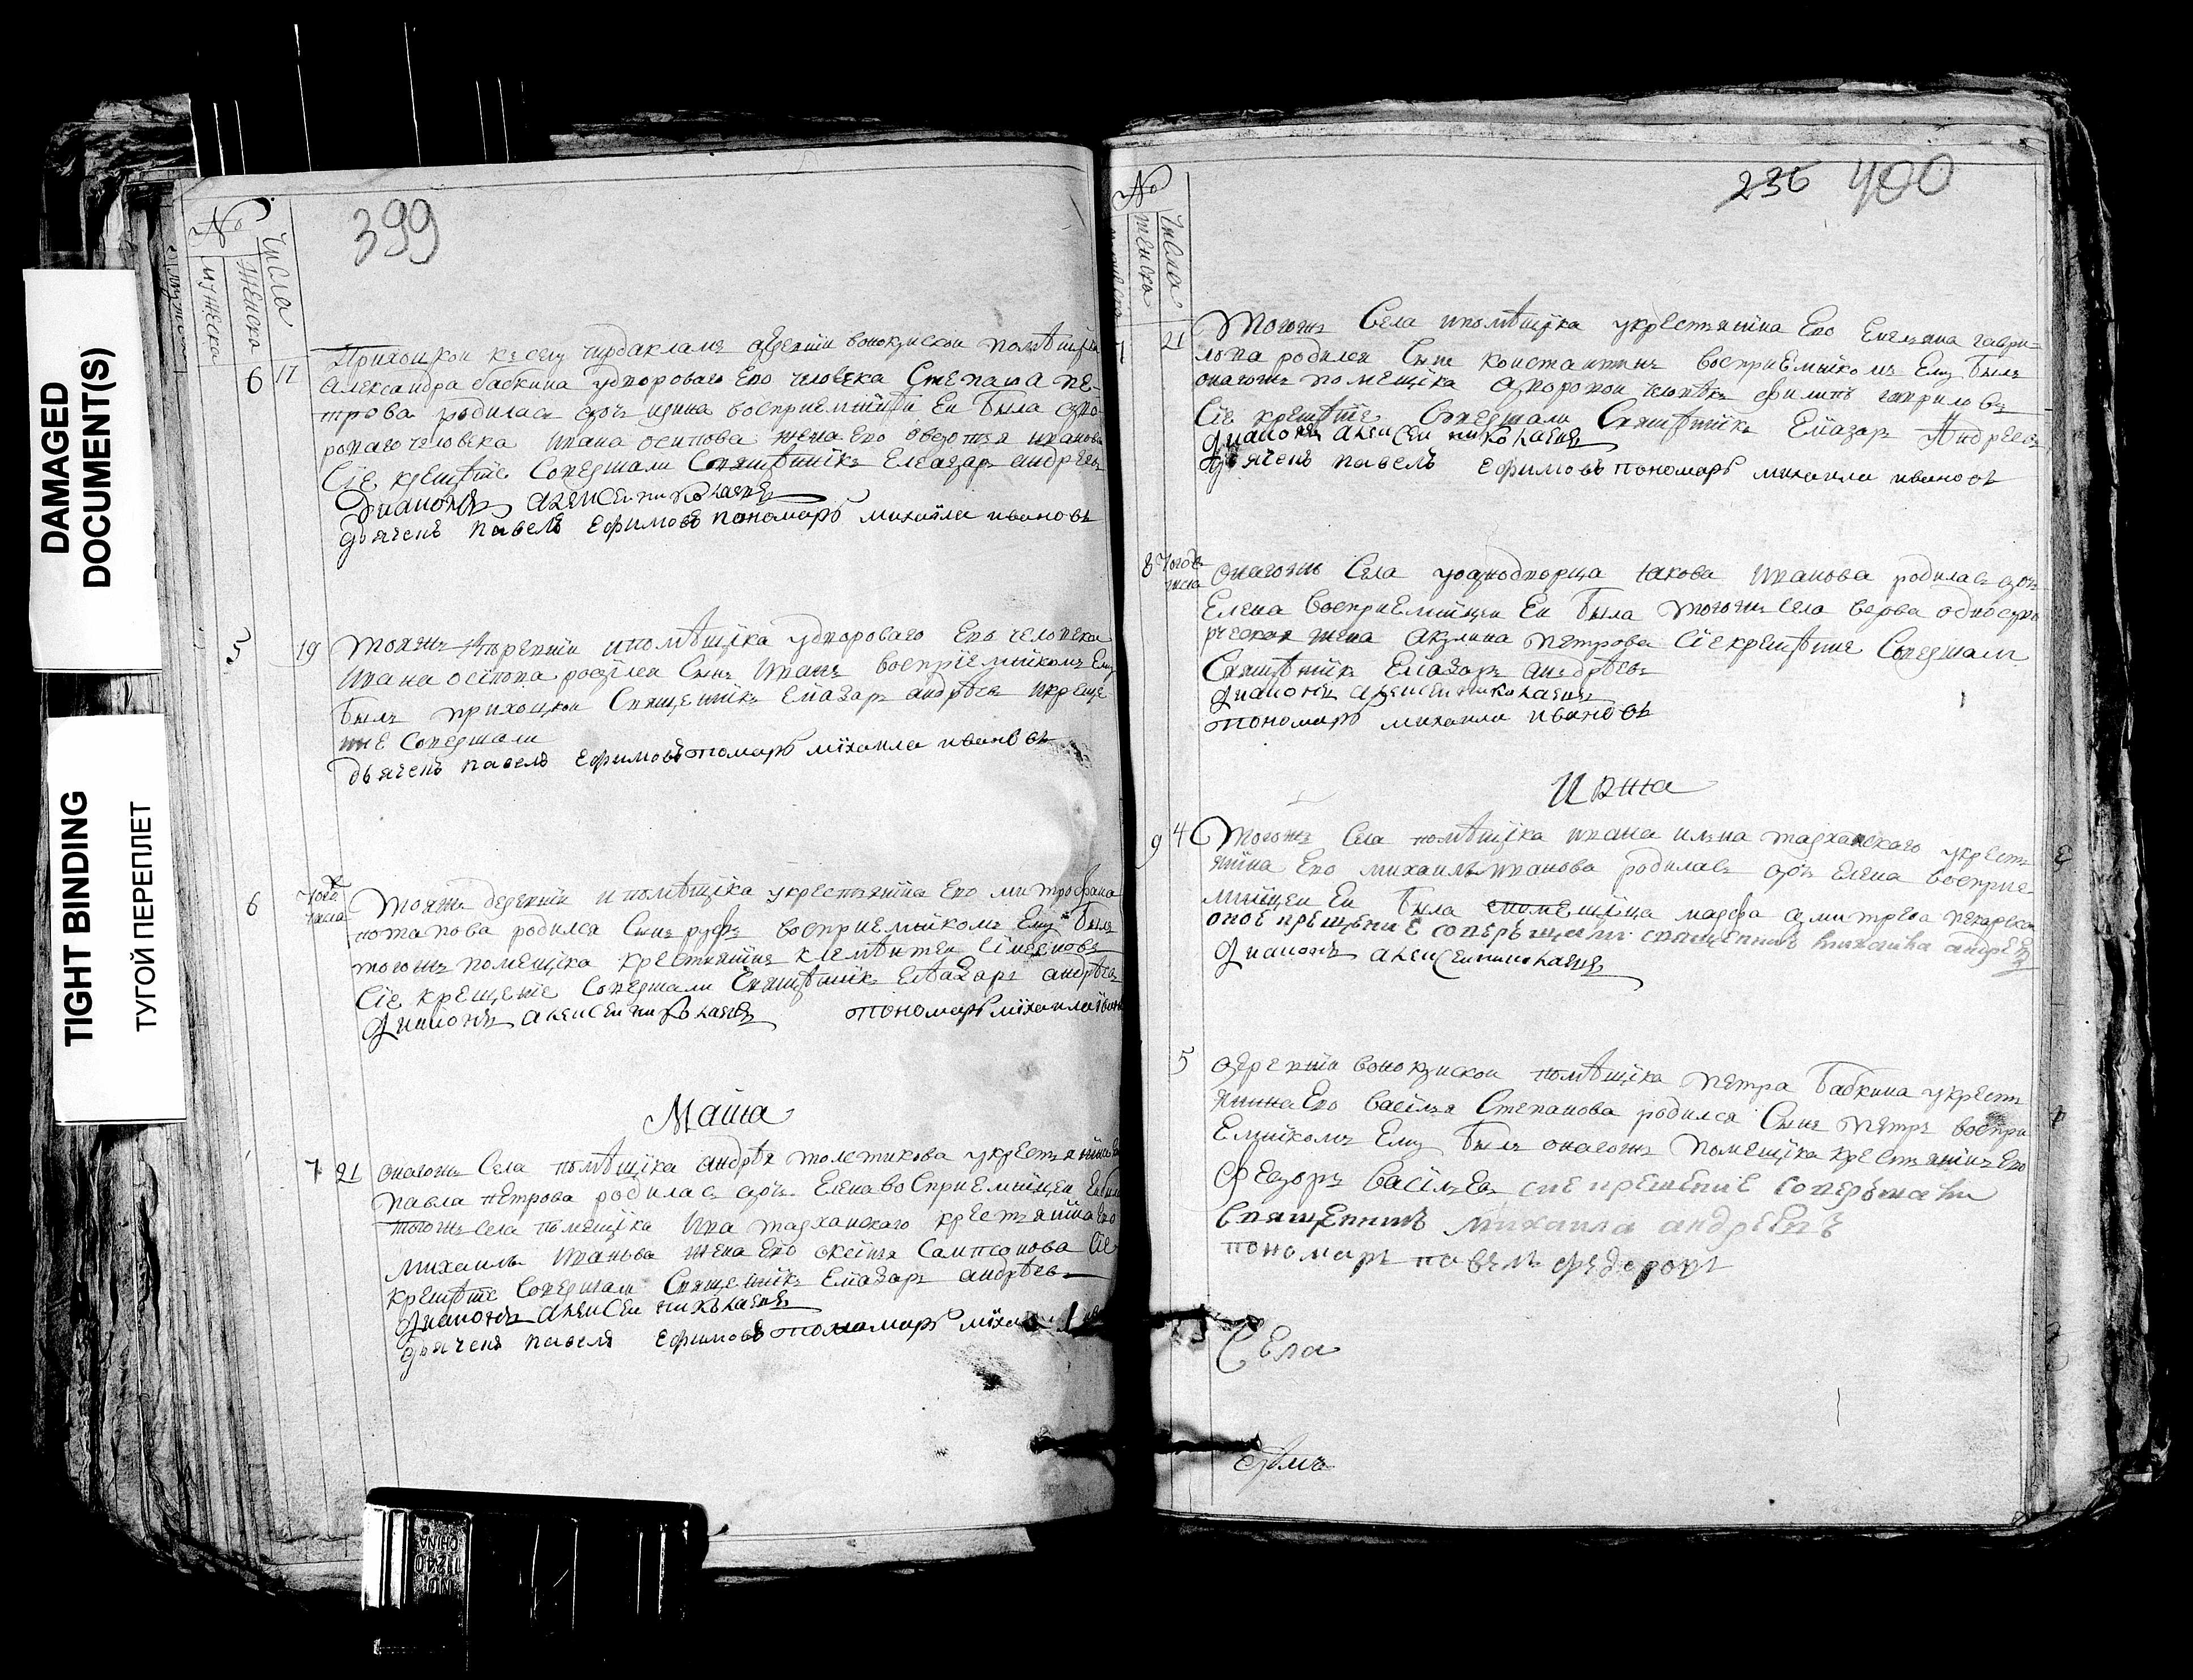 DAMAGED
DOCUMENT(S)
TIGHT BINDING
ТУГОЙ ПЕРЕПЛЕТ
399
№
мужеска
женска
числа
6 17
александра бабкина удворового Его человека Степана пе-
трова родилась дочь восприемницей Ей была дво-
роваго человека ивана осипова жена Его овдотья иванова
Сие крещение Совершали Священникъ Елеазаръ андреевъ
Диаконъ алексей николаевъ
дьячекъ павелъ Ефимовъ пономарь михаила ивановъ
19 тояжъ деревни и помѣщика удвороваго Его человека
ивана осипова родился Сынъ иванъ восприемникомъ Ему
былъ приходцкой Священникъ Елиазаръ андрѣевъ и креще
ние Совершали
дьячекъ павелъ Ефимовъ пономарь михаила ивановъ
6 того числа
тояжъ деревни и помѣщика укрестьянина Его митрофана
потапова родился Сынъ восприемникомъ Ему былъ
тогожъ помещика крестьянинъ
Сие крещение Совершали Священникъ Елиазаръ андрѣевъ
Диаконъ алексей николаевъ пономарь михаила
Маия
7 21 онагожъ Села помѣщика андрѣя толстикова укрестьянина
павла петрова родилась дочь Елена восприемницей Ей была
тогожъ села помещика тарханскаго крестьянина Его
михаила иванова жена Его Сампсонова Сие
крещение Совершали Священникъ Елиазаръ андрѣевъ
Диаконъ алексей николаевъ
дьячекъ павелъ Ефимовъ пономарь
236 400
№
женска
числа
21 Тогожъ Села и помѣщика укрестьянина Его Емельяна гаври-
лова родился Сынъ константинъ восприемникомъ Ему былъ
онагожъ помещика дворовой человекъ филипъ гаврилов
Сие крещение Совершали Священникъ Елиазаръ Андреевъ
Диаконъ алексей николаевъ
дьячекъ павелъ Ефимовъ пономарь михаила ивановъ
8 того числа онагожъ Села уоднодворца якова иванова родилась дочь
Елена восприемницей Ей была тогожъ села
жена акулина петрова Сие крещение Совершали
Священникъ Елиазаръ андрѣевъ
Диаконъ алексей николаевъ
пономарь михаила ивановъ
Июня
9 4 Тогожъ Села помѣщика ивана тарханскаго укресть
янина Его михаила иванова родилась дочь Елена восприе-
мницей Ей была помещица марфа дмитрева
оное крещение совершали священникъ михаила андреевъ
Диаконъ алексей николаевъ
5 деревни помѣщика петра бабкина укресть
янина Его василья Степанова родился Сынъ петръ воспри
емникомъ Ему былъ онагожъ помещика крестьянинъ Его
федоръ васильевъ сие крещение совершали
священникъ михаила андреевъ
пономарь павелъ федоровъ
Села